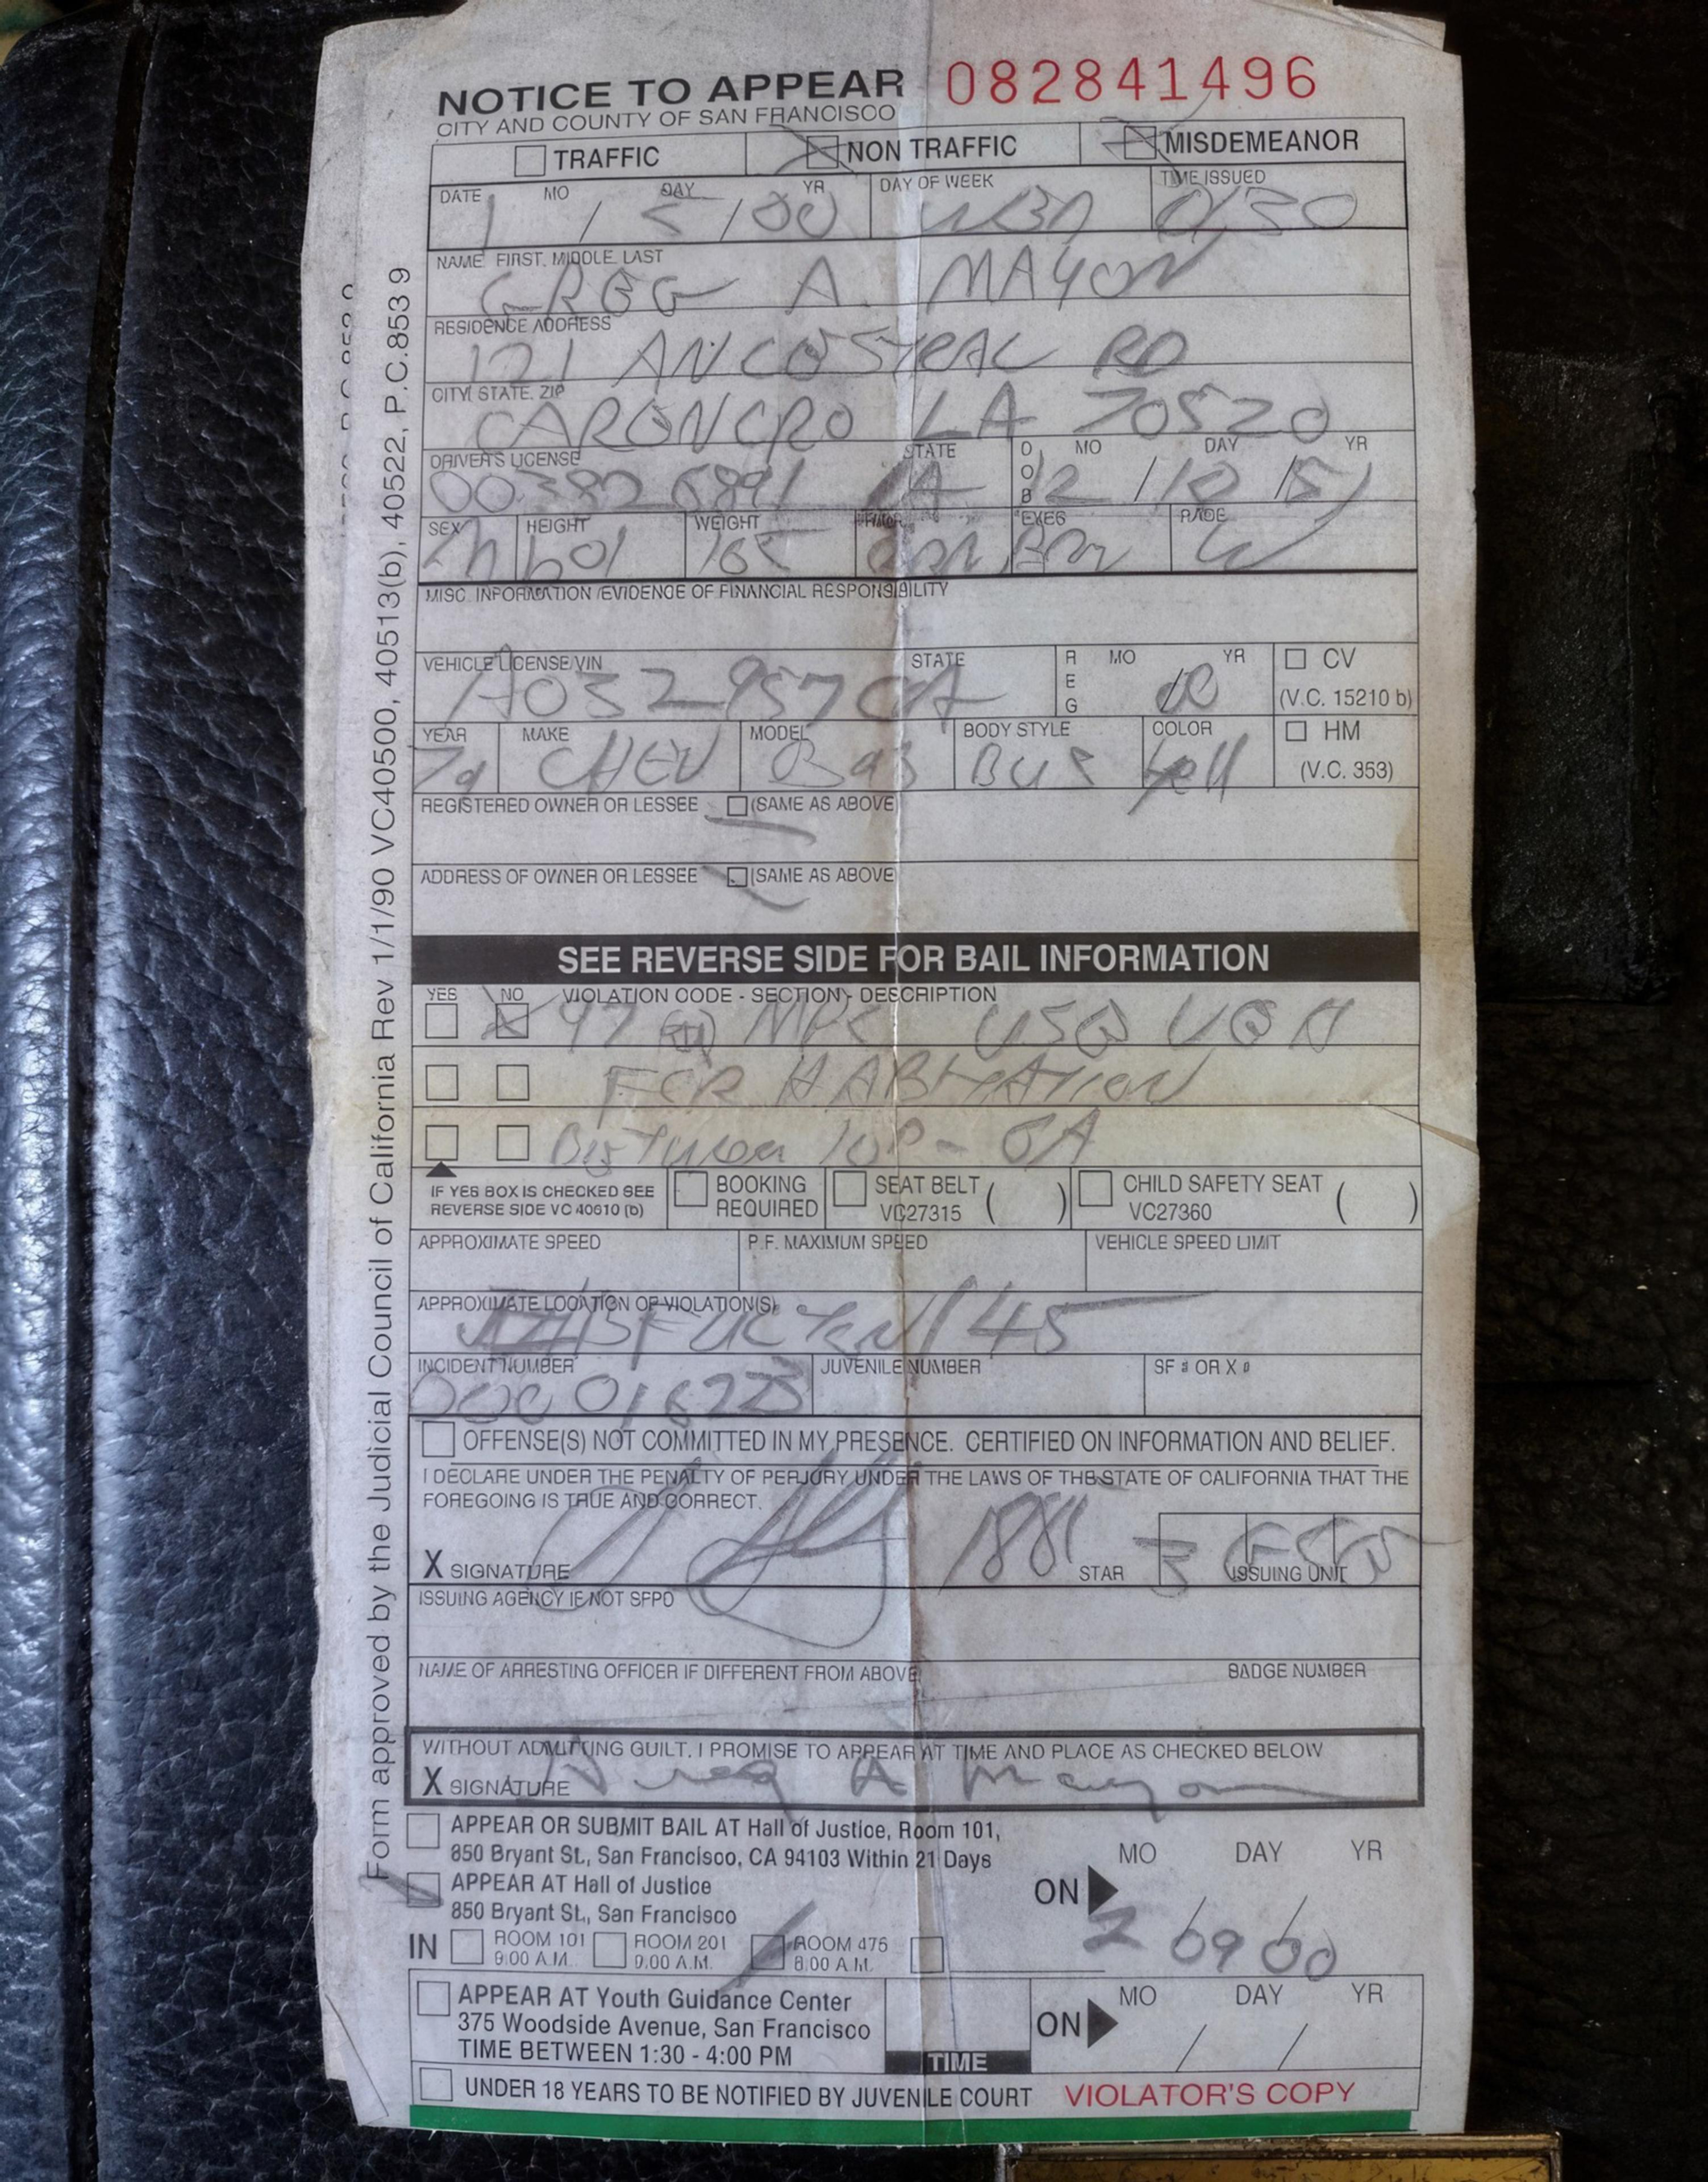 NOTICE TO APPEAR 082841496
CITY AND COUNTY OF SAN FRANCISCO
TRAFFIC NON TRAFFIC MISDEMEANOR
DATE MO DAY YR DAY OF WEEK TIME ISSUED
1 / 5 / 00 WED 0130
NAME FIRST, MIDDLE, LAST
GREG A. MAYON
RESIDENCE ADDRESS
121 ANCOSTRAL RD
CITY, STATE, ZIP
CARENCRO LA 70520
DRIVER'S LICENSE STATE DOB MO DAY YR
LA 12 / 10 / 51
SEX HEIGHT WEIGHT HAIR EYES RACE
M 601 165 BRN BRN W
MISC. INFORMATION /EVIDENCE OF FINANCIAL RESPONSIBILITY
VEHICLE LICENSE/VIN STATE REG MO YR CV
A032957 CA 00 (V.C. 15210 b)
YEAR MAKE MODEL BODY STYLE COLOR HM
CHEV BUS Yell (V.C. 353)
REGISTERED OWNER OR LESSEE (SAME AS ABOVE)
ADDRESS OF OWNER OR LESSEE (SAME AS ABOVE)
SEE REVERSE SIDE FOR BAIL INFORMATION
YES NO VIOLATION CODE - SECTION - DESCRIPTION
97 MPC USE VEH
FOR HABITATION
Between 10P - 6A
IF YES BOX IS CHECKED SEE REVERSE SIDE VC 40610 (b)
BOOKING REQUIRED
SEAT BELT VC27315 ( )
CHILD SAFETY SEAT VC27360 ( )
APPROXIMATE SPEED P.F. MAXIMUM SPEED VEHICLE SPEED LIMIT
APPROXIMATE LOCATION OF VIOLATION(S)
INCIDENT NUMBER JUVENILE NUMBER SF # OR X #
OFFENSE(S) NOT COMMITTED IN MY PRESENCE. CERTIFIED ON INFORMATION AND BELIEF.
I DECLARE UNDER THE PENALTY OF PERJURY UNDER THE LAWS OF THE STATE OF CALIFORNIA THAT THE
FOREGOING IS TRUE AND CORRECT.
X SIGNATURE 1881 STAR ISSUING UNIT
ISSUING AGENCY IF NOT SFPD
NAME OF ARRESTING OFFICER IF DIFFERENT FROM ABOVE BADGE NUMBER
WITHOUT ADMITTING GUILT, I PROMISE TO APPEAR AT TIME AND PLACE AS CHECKED BELOW
X SIGNATURE Greg A Mayon
APPEAR OR SUBMIT BAIL AT Hall of Justice, Room 101,
850 Bryant St., San Francisco, CA 94103 Within 21 Days
MO DAY YR
APPEAR AT Hall of Justice
850 Bryant St., San Francisco
ON 2 / 09 / 00
IN ROOM 101 9:00 A.M. ROOM 201 9:00 A.M. ROOM 475 8:00 A.M.
APPEAR AT Youth Guidance Center
375 Woodside Avenue, San Francisco
TIME BETWEEN 1:30 - 4:00 PM
TIME
ON MO DAY YR
/ /
UNDER 18 YEARS TO BE NOTIFIED BY JUVENILE COURT VIOLATOR'S COPY
Form approved by the Judicial Council of California Rev 1/1/90 VC40500, 40513(b), 40522, P.C.853 9